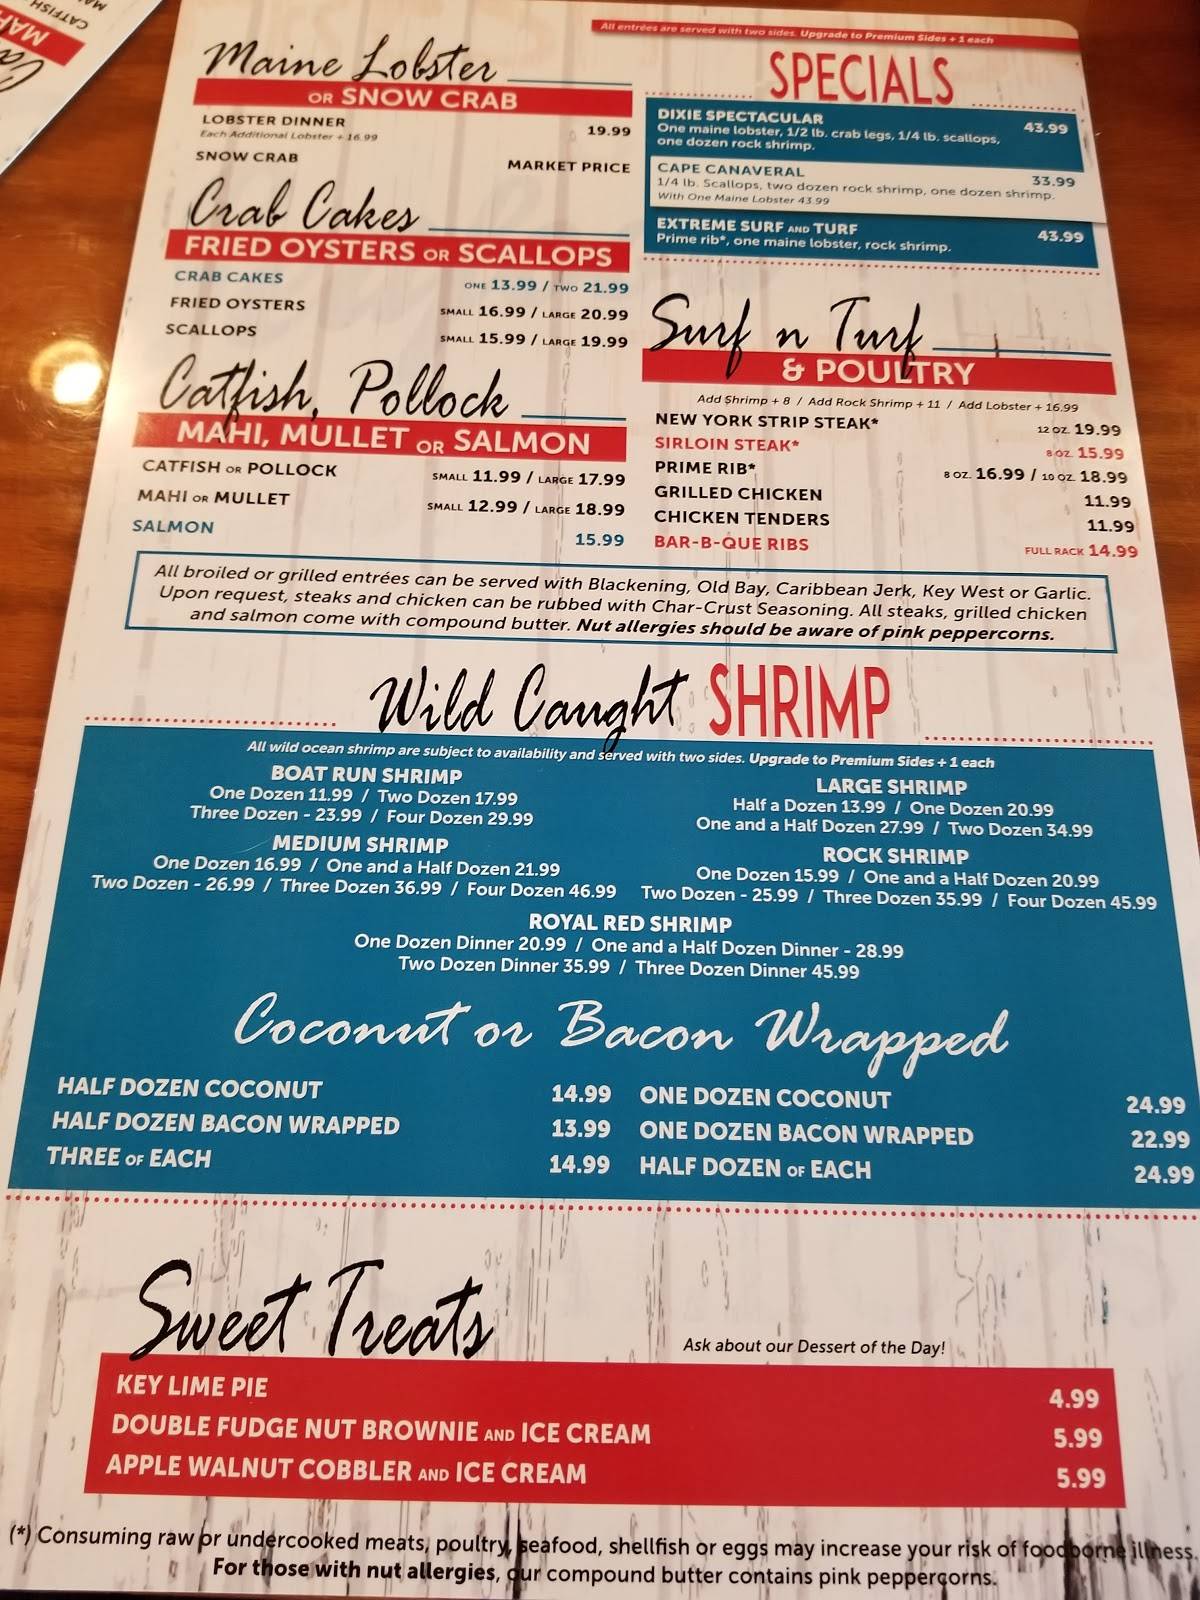 CATFISH
MAH
All entrées are served with two sides. Upgrade to Premium Sides + 1 each
Maine Lobster
OR SNOW CRAB
LOBSTER DINNER 19.99
Each Additional Lobster + 16.99
SNOW CRAB MARKET PRICE
Crab Cakes
FRIED OYSTERS OR SCALLOPS
CRAB CAKES ONE 13.99 / TWO 21.99
FRIED OYSTERS SMALL 16.99 / LARGE 20.99
SCALLOPS SMALL 15.99 / LARGE 19.99
Catfish, Pollock
MAHI, MULLET OR SALMON
CATFISH OR POLLOCK SMALL 11.99 / LARGE 17.99
MAHI OR MULLET SMALL 12.99 / LARGE 18.99
SALMON 15.99
SPECIALS
DIXIE SPECTACULAR 43.99
One maine lobster, 1/2 lb. crab legs, 1/4 lb. scallops,
one dozen rock shrimp.
CAPE CANAVERAL 33.99
1/4 lb. Scallops, two dozen rock shrimp, one dozen shrimp.
With One Maine Lobster 43.99
EXTREME SURF AND TURF 43.99
Prime rib*, one maine lobster, rock shrimp.
Surf n Turf
& POULTRY
Add Shrimp + 8 / Add Rock Shrimp + 11 / Add Lobster + 16.99
NEW YORK STRIP STEAK* 12 OZ. 19.99
SIRLOIN STEAK* 8 OZ. 15.99
PRIME RIB* 8 OZ. 16.99 / 10 OZ. 18.99
GRILLED CHICKEN 11.99
CHICKEN TENDERS 11.99
BAR-B-QUE RIBS FULL RACK 14.99
All broiled or grilled entrées can be served with Blackening, Old Bay, Caribbean Jerk, Key West or Garlic.
Upon request, steaks and chicken can be rubbed with Char-Crust Seasoning. All steaks, grilled chicken
and salmon come with compound butter. Nut allergies should be aware of pink peppercorns.
Wild Caught SHRIMP
All wild ocean shrimp are subject to availability and served with two sides. Upgrade to Premium Sides + 1 each
BOAT RUN SHRIMP
One Dozen 11.99 / Two Dozen 17.99
Three Dozen - 23.99 / Four Dozen 29.99
MEDIUM SHRIMP
One Dozen 16.99 / One and a Half Dozen 21.99
Two Dozen - 26.99 / Three Dozen 36.99 / Four Dozen 46.99
LARGE SHRIMP
Half a Dozen 13.99 / One Dozen 20.99
One and a Half Dozen 27.99 / Two Dozen 34.99
ROCK SHRIMP
One Dozen 15.99 / One and a Half Dozen 20.99
Two Dozen - 25.99 / Three Dozen 35.99 / Four Dozen 45.99
ROYAL RED SHRIMP
One Dozen Dinner 20.99 / One and a Half Dozen Dinner - 28.99
Two Dozen Dinner 35.99 / Three Dozen Dinner 45.99
Coconut or Bacon Wrapped
HALF DOZEN COCONUT 14.99
HALF DOZEN BACON WRAPPED 13.99
THREE OF EACH 14.99
ONE DOZEN COCONUT 24.99
ONE DOZEN BACON WRAPPED 22.99
HALF DOZEN OF EACH 24.99
Sweet Treats
Ask about our Dessert of the Day!
KEY LIME PIE 4.99
DOUBLE FUDGE NUT BROWNIE AND ICE CREAM 5.99
APPLE WALNUT COBBLER AND ICE CREAM 5.99
(*) Consuming raw or undercooked meats, poultry, seafood, shellfish or eggs may increase your risk of foodborne illness.
For those with nut allergies, our compound butter contains pink peppercorns.